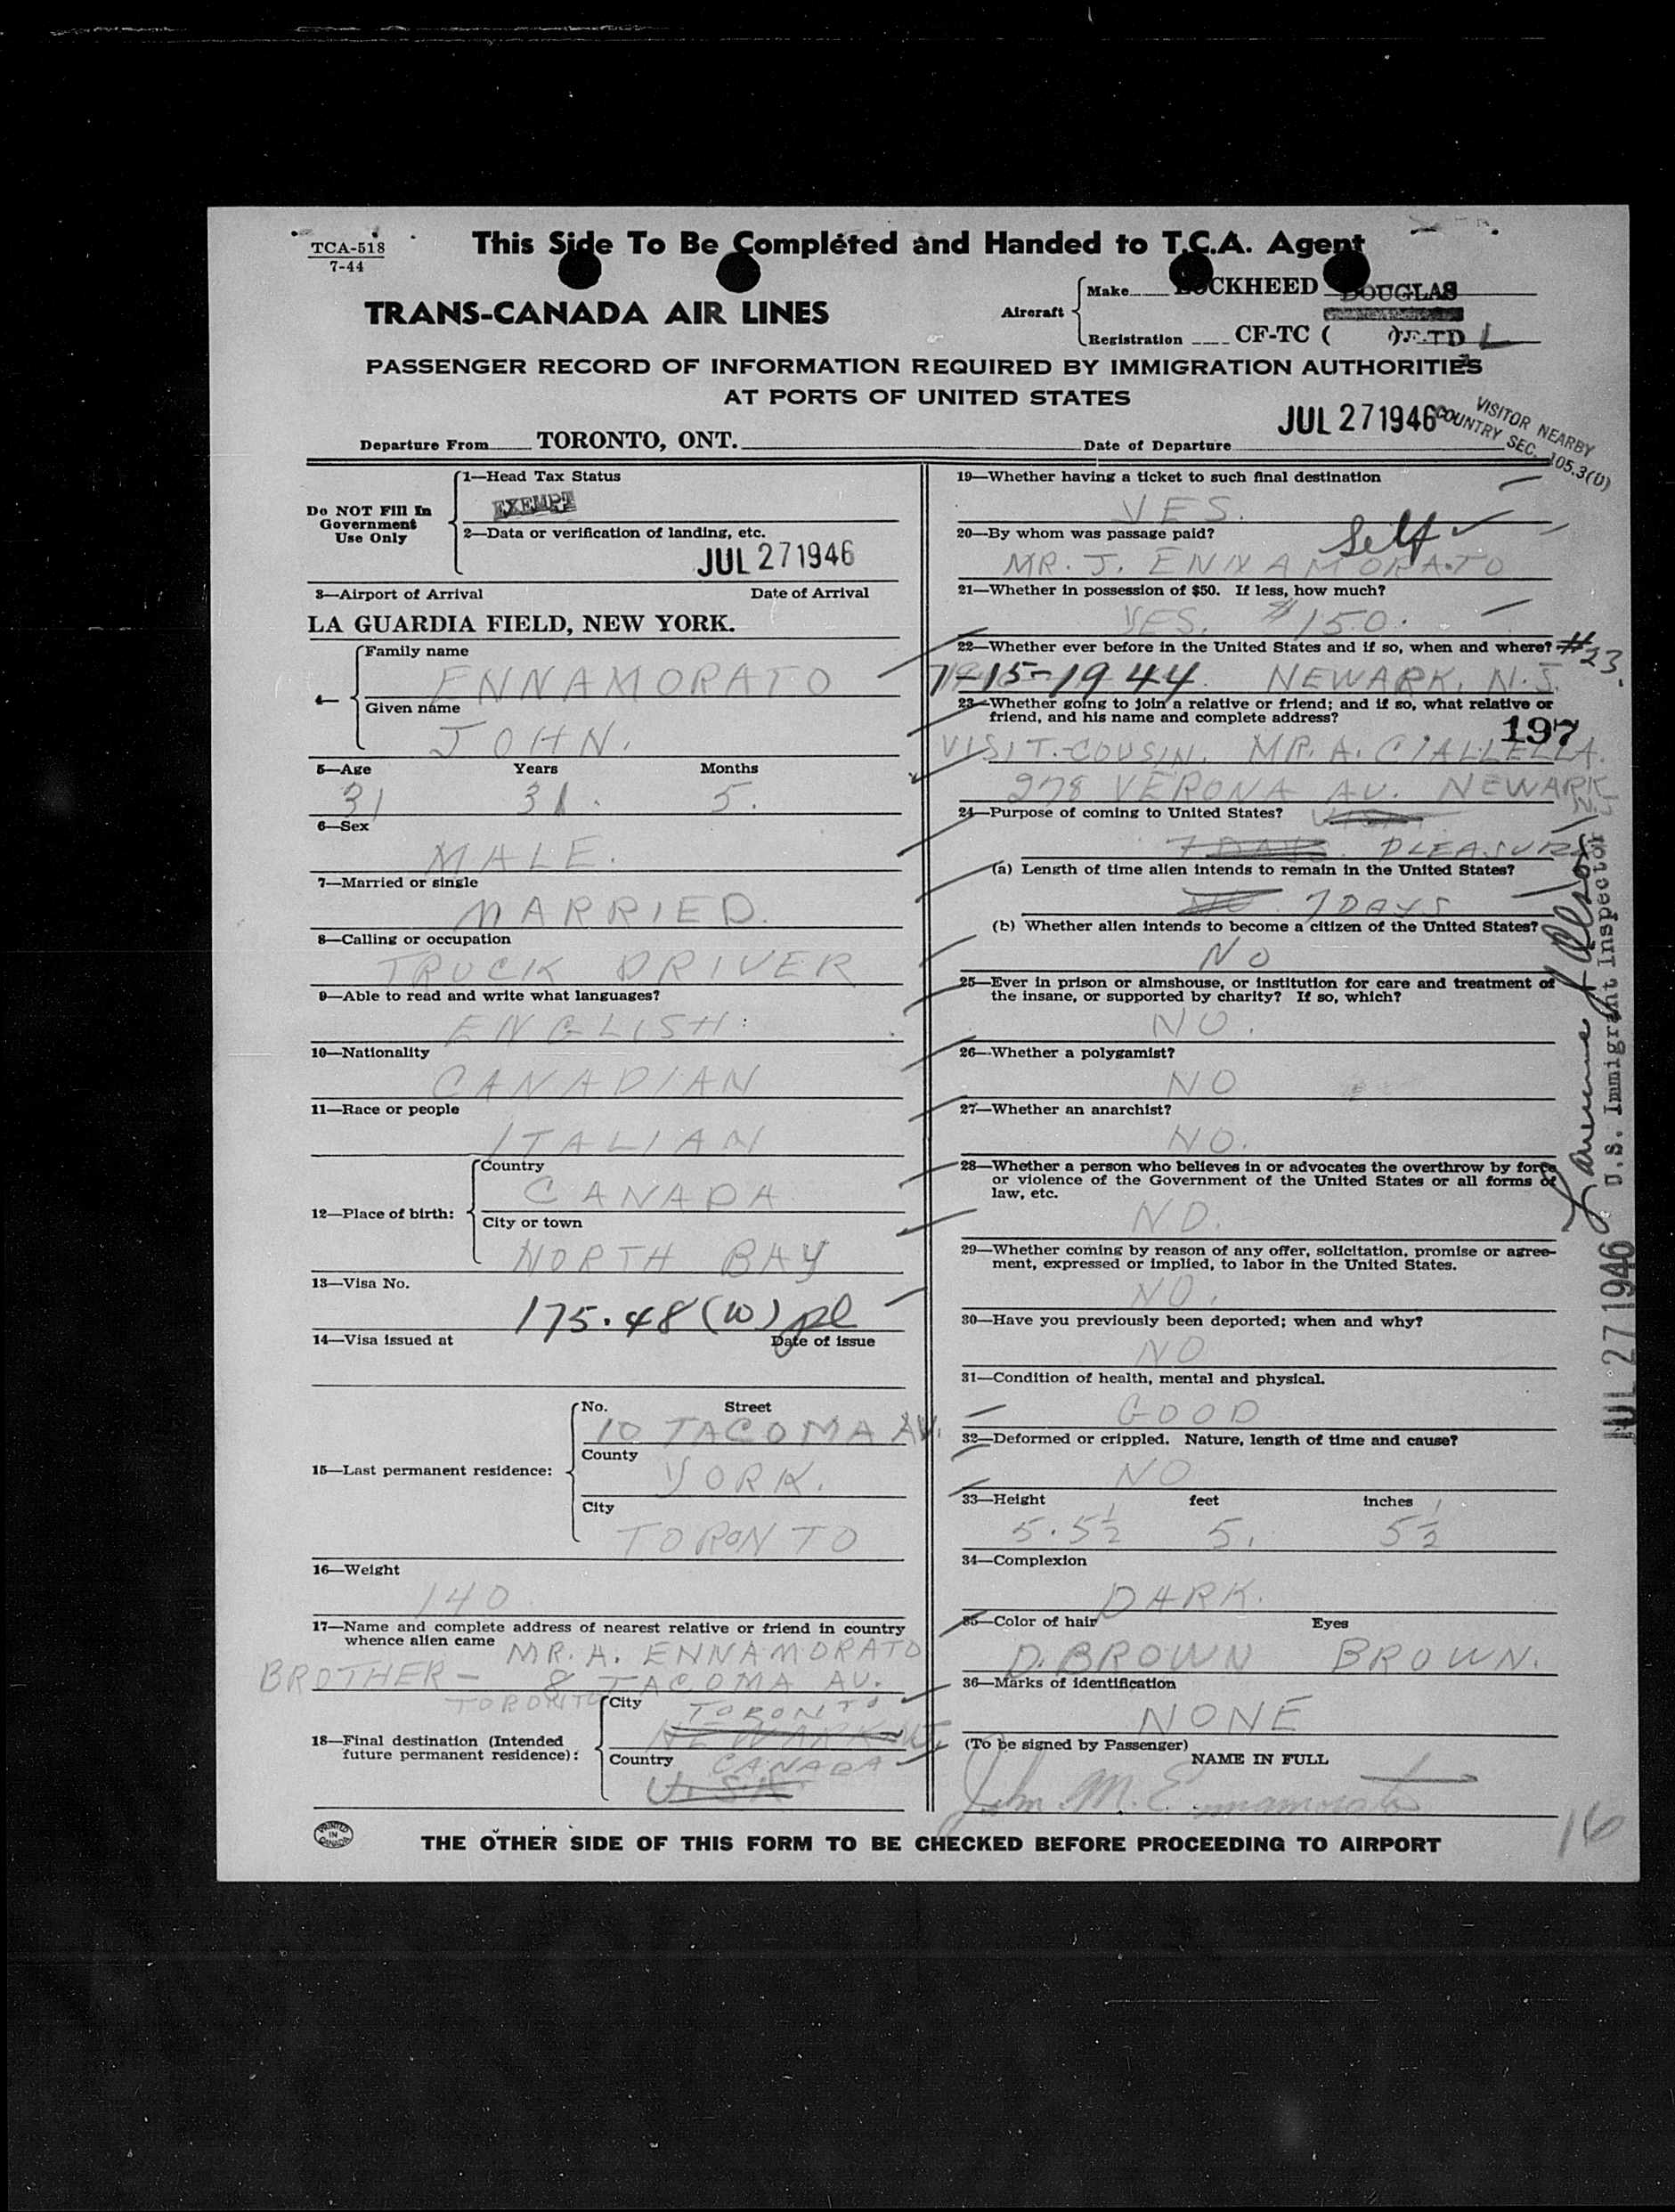 TCA-518
7-44
This Side To Be Completed and Handed to T.C.A. Agent
TRANS-CANADA AIR LINES
Aircraft
Make LOCKHEED DOUGLAS
Registration CF-TC ( )F-TD L
PASSENGER RECORD OF INFORMATION REQUIRED BY IMMIGRATION AUTHORITIES
AT PORTS OF UNITED STATES
Departure From TORONTO, ONT. Date of Departure JUL 27 1946
VISITOR NEARBY
COUNTRY SEC. 105.3(U)
Do NOT Fill In
Government
Use Only
1—Head Tax Status
EXEMPT
2—Data or verification of landing, etc.
JUL 27 1946
3—Airport of Arrival Date of Arrival
LA GUARDIA FIELD, NEW YORK.
4—
Family name
ENNAMORATO
Given name
JOHN.
5—Age Years Months
31 31. 5.
6—Sex
MALE.
7—Married or single
MARRIED.
8—Calling or occupation
TRUCK DRIVER
9—Able to read and write what languages?
ENGLISH.
10—Nationality
CANADIAN
11—Race or people
ITALIAN
12—Place of birth:
Country
CANADA
City or town
NORTH BAY
13—Visa No.
175.48 (W) pl
14—Visa issued at Date of issue
15—Last permanent residence:
No. Street
10 TACOMA AV.
County
YORK.
City
TORONTO
16—Weight
140
17—Name and complete address of nearest relative or friend in country
whence alien came MR. A. ENNAMORATO
BROTHER - 8 TACOMA AV.
TORONTO
18—Final destination (Intended
future permanent residence):
City TORONTO
NEWARK N.J.
Country CANADA
U.S.A.
19—Whether having a ticket to such final destination
YES.
20—By whom was passage paid? Self
MR. J. ENNAMORATO
21—Whether in possession of $50. If less, how much?
YES. $150.
22—Whether ever before in the United States and if so, when and where? #23.
7-15-1944. NEWARK, N.J.
23—Whether going to join a relative or friend; and if so, what relative or
friend, and his name and complete address?
197
VISIT-COUSIN. MR. A. CIALLELLA.
278 VERONA AV. NEWARK
N.J.
24—Purpose of coming to United States? VISIT.
7 DAYS. PLEASURE
(a) Length of time alien intends to remain in the United States?
NO. 7 DAYS
(b) Whether alien intends to become a citizen of the United States?
NO
25—Ever in prison or almshouse, or institution for care and treatment of
the insane, or supported by charity? If so, which?
NO.
26—Whether a polygamist?
NO
27—Whether an anarchist?
NO.
28—Whether a person who believes in or advocates the overthrow by force
or violence of the Government of the United States or all forms of
law, etc.
NO.
29—Whether coming by reason of any offer, solicitation, promise or agree-
ment, expressed or implied, to labor in the United States.
NO.
30—Have you previously been deported; when and why?
NO
31—Condition of health, mental and physical.
GOOD
32—Deformed or crippled. Nature, length of time and cause?
NO
33—Height feet inches
5.5½ 5. 5½
34—Complexion
DARK.
35—Color of hair Eyes
D. BROWN BROWN.
36—Marks of identification
NONE
(To be signed by Passenger)
NAME IN FULL
John M. Ennamorato
16
U.S. Immigrant Inspector
JUL 27 1946
PRINTED
IN
CANADA
THE OTHER SIDE OF THIS FORM TO BE CHECKED BEFORE PROCEEDING TO AIRPORT